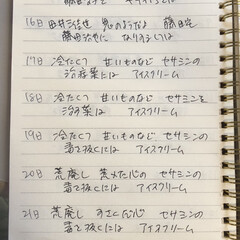 16日 田井治世 鬼のようだな 藤田宅
藤田治也に なりすましては
17日 冷たくて 甘いものなど セサミンの
治療薬には アイスクリーム
18日 冷たくて 甘いものなど セサミンを
治す薬は アイスクリーム
19日 冷たくて 甘いものなど セサミンの
毒で抜くには アイスクリーム
20日 荒廃し 荒めた心の セサミンの
毒で抜くには アイスクリーム
21日 荒廃し すさんだ心 セサミンの
毒で抜くには アイスクリーム